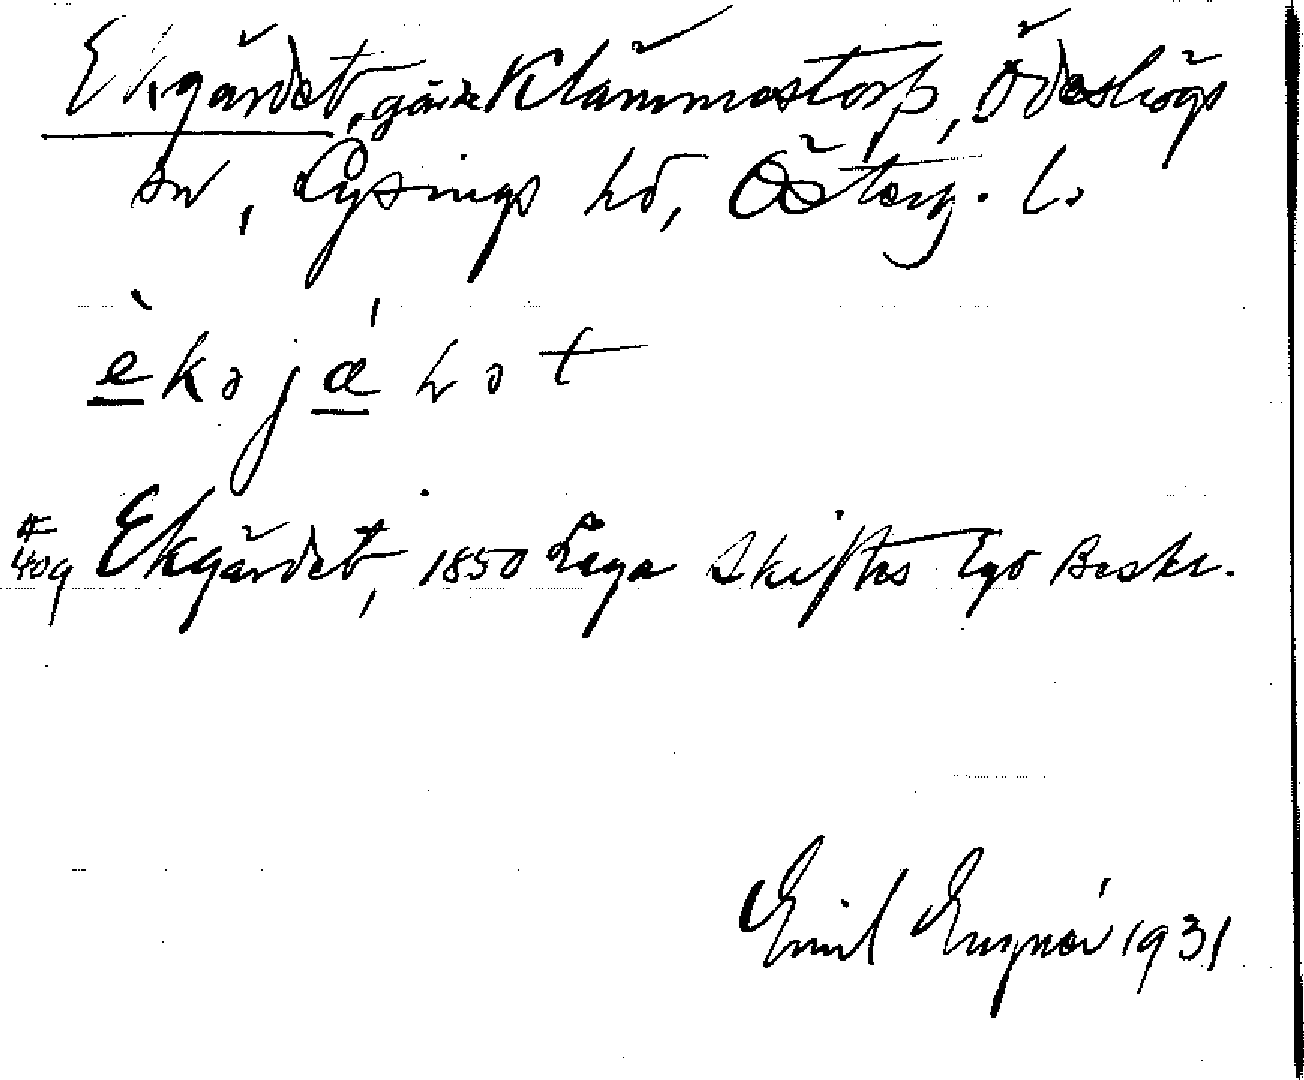 Ekgärdet, gård Klämmestorp, Ödeshögs
sn, Lysings hd, Österg. l.
èkəjáḷət
409 Ekgärdet, 1850 Laga Skiftes Ego Beskr.
Emil 1931